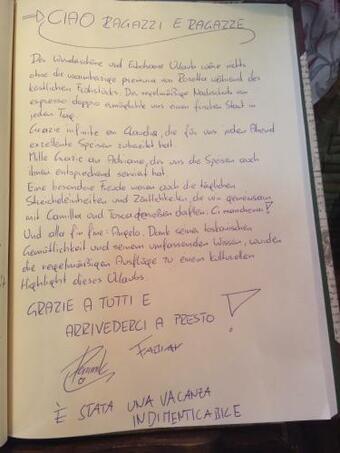 CIAO RAGAZZI E RAGAZZE
Der wunderschöne und Erholsame Urlaub wäre nichts
ohne die warmherzige premura von Rosetta während des
köstlichen Frühstücks. Der regelmäßige Nachschub an
espresso doppio ermöglichte uns einen frischen Start in
jeden Tag.
Grazie infinite an Claudia, die für uns jeden Abend
exzellente Speisen zubereitet hat.
Mille Grazie an Adriana, der uns die Speisen auch
ihnen entsprechend serviert hat.
Eine besondere Freude waren auch die täglichen
Streicheleinheiten und Zärtlichkeiten, die wir gemeinsam
mit Camilla und Tosca genießen durften. Ci mancherai!
Und alla fin fine: Angelo. Dank seiner toskanischen
Gemütlichkeit und seinem umfassenden Wissen, wurden
die regelmäßigen Ausflüge zu einem kulturellen
Highlight dieses Urlaubs.
GRAZIE A TUTTI E
ARRIVEDERCI A PRESTO!
FABIAN
È STATA UNA VACANZA
INDIMENTICABILE